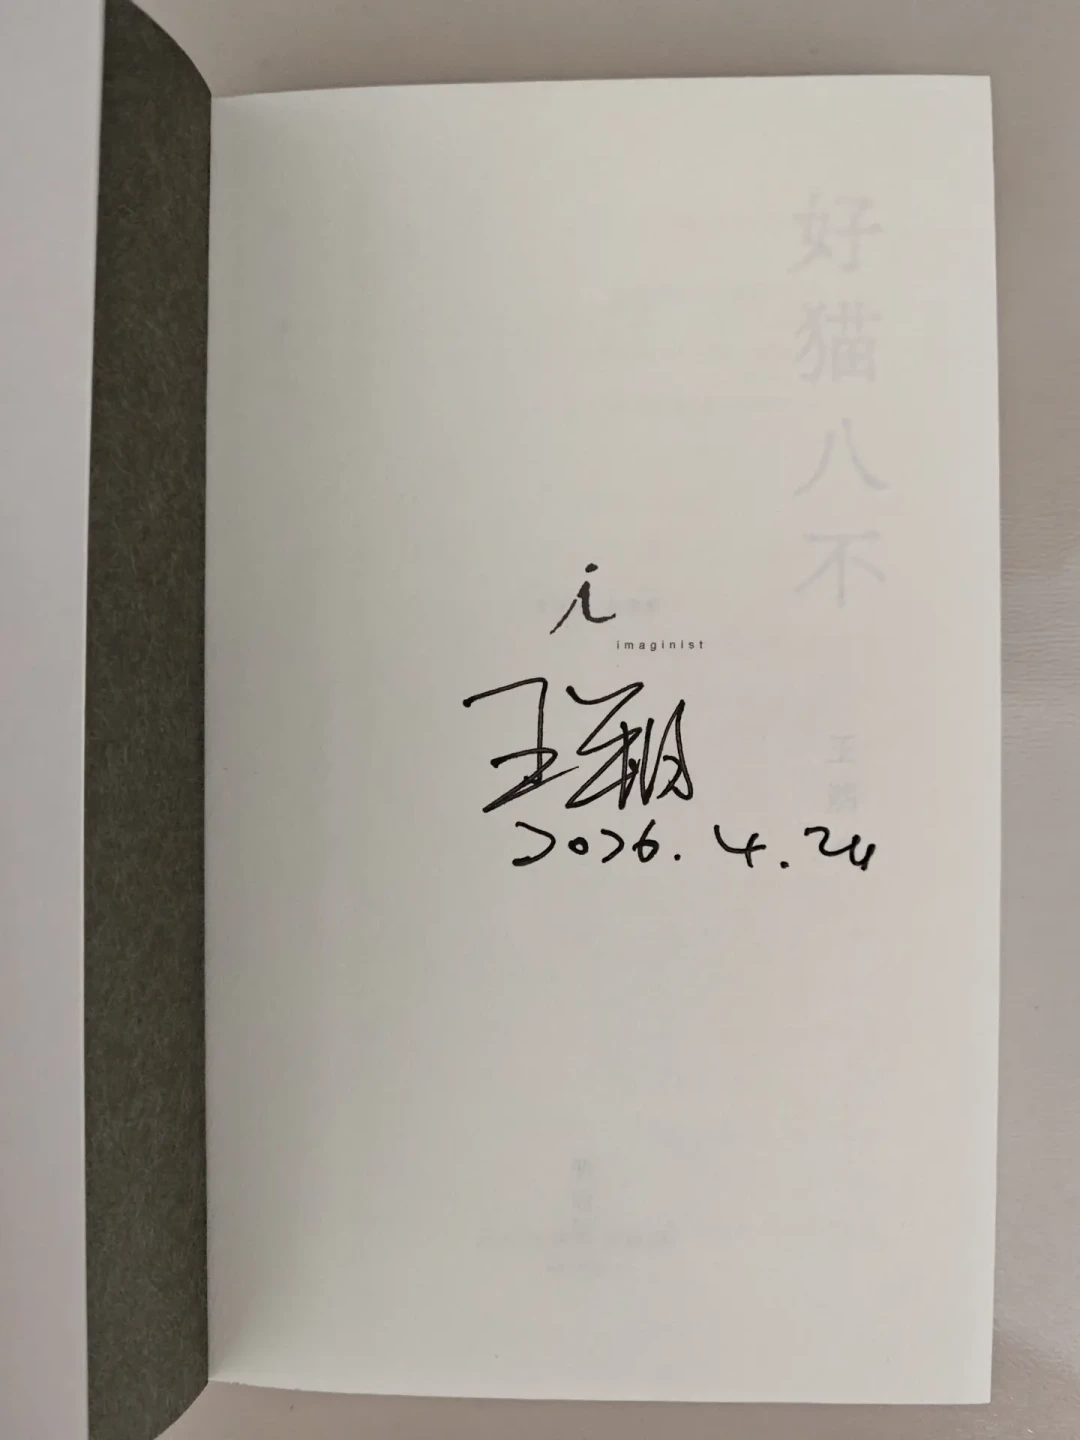 好猫八不
i
imaginist
王朔
2026.4.24